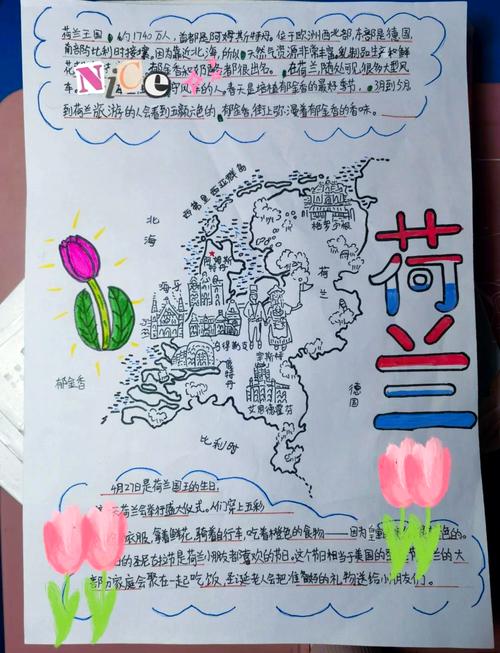 荷兰王国,约1740万人,首都是阿姆斯特丹。位于欧洲西北部,东部是德国,
南部与比利时接壤。因为靠近北海,所以天然气资源非常丰富,乳制品生产和鲜
花 郁金香和奶酪都很出名。在荷兰,随处可见很多大型风
车 守风车的人。春天是培植郁金香的最好季节,3月到5月
到荷兰旅游的人会看到五颜六色的郁金香,街上弥漫着郁金香的香味。
NiCe
西弗里西亚群岛
北海
格罗宁根
阿姆斯特丹
荷兰
荷兰
海牙
乌得勒支
鹿特丹
郁金香
艾恩德霍芬
德国
比利时
4月27日是荷兰国王的生日,
荷兰会举行盛大仪式。人们穿上五彩
衣服,拿着鲜花,骑着自行车,吃着橙色的食物——因为皇 是 色的。
的圣尼古拉节是荷兰小朋友都喜欢的节日,这个节日相当于美国的圣 兰的大
部份家庭会聚在一起吃饭,圣诞老人会把准备好的礼物送给小朋友们。